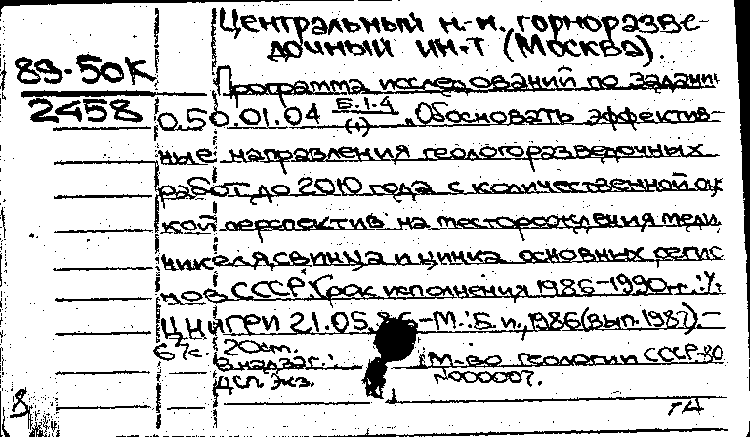 Центральный н.-и. горноразве-
дочный ин-т (Москва).
89-50К
2458
Программа исследований по задани
0.50.01.04 Б.1.4 (1) „Обосновать эффектив-
ные направления геологоразведочных
работ до 2010 года с количественной оц
кой перспектив на месторождения меди,
никеля, свинца и цинка основных регио
нов СССР. Срок исполнения 1986-1990 гг.:
ЦНИГРИ 21.05.86.-М.:Б.и., 1986 (вып. 1987).-
67с. 20см.
В надзаг.: М-во геологии СССР.
ДСП. Экз. N000007.
8